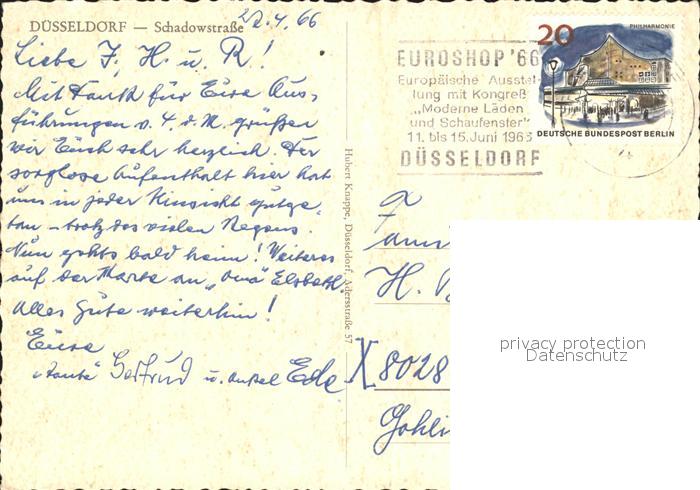 DÜSSELDORF — Schadowstraße
22.4.66
Liebe F, H. u. R!
Mit Dank für Eure Aus-
führungen v. 4. d. M. grüßen
wir Euch sehr herzlich. Der
sorglose Aufenthalt hier hat
uns in jeder Hinsicht gutge-
tan – trotz des vielen Regens.
Nun gehts bald heim! Weiteres
auf der Karte an „Oma" Elsbeth
Alles Gute weiterhin!
Eure
„Tante" Gertrud u. Onkel
Hubert Knappe, Düsseldorf, Adersstraße 57
EUROSHOP '66
Europäische Ausstel-
lung mit Kongreß
„Moderne Läden
und Schaufenster"
11. bis 15. Juni 1966
DÜSSELDORF
20
PHILHARMONIE
DEUTSCHE BUNDESPOST BERLIN
Fam
H.
X 8028
Gohli
privacy protection
Datenschutz